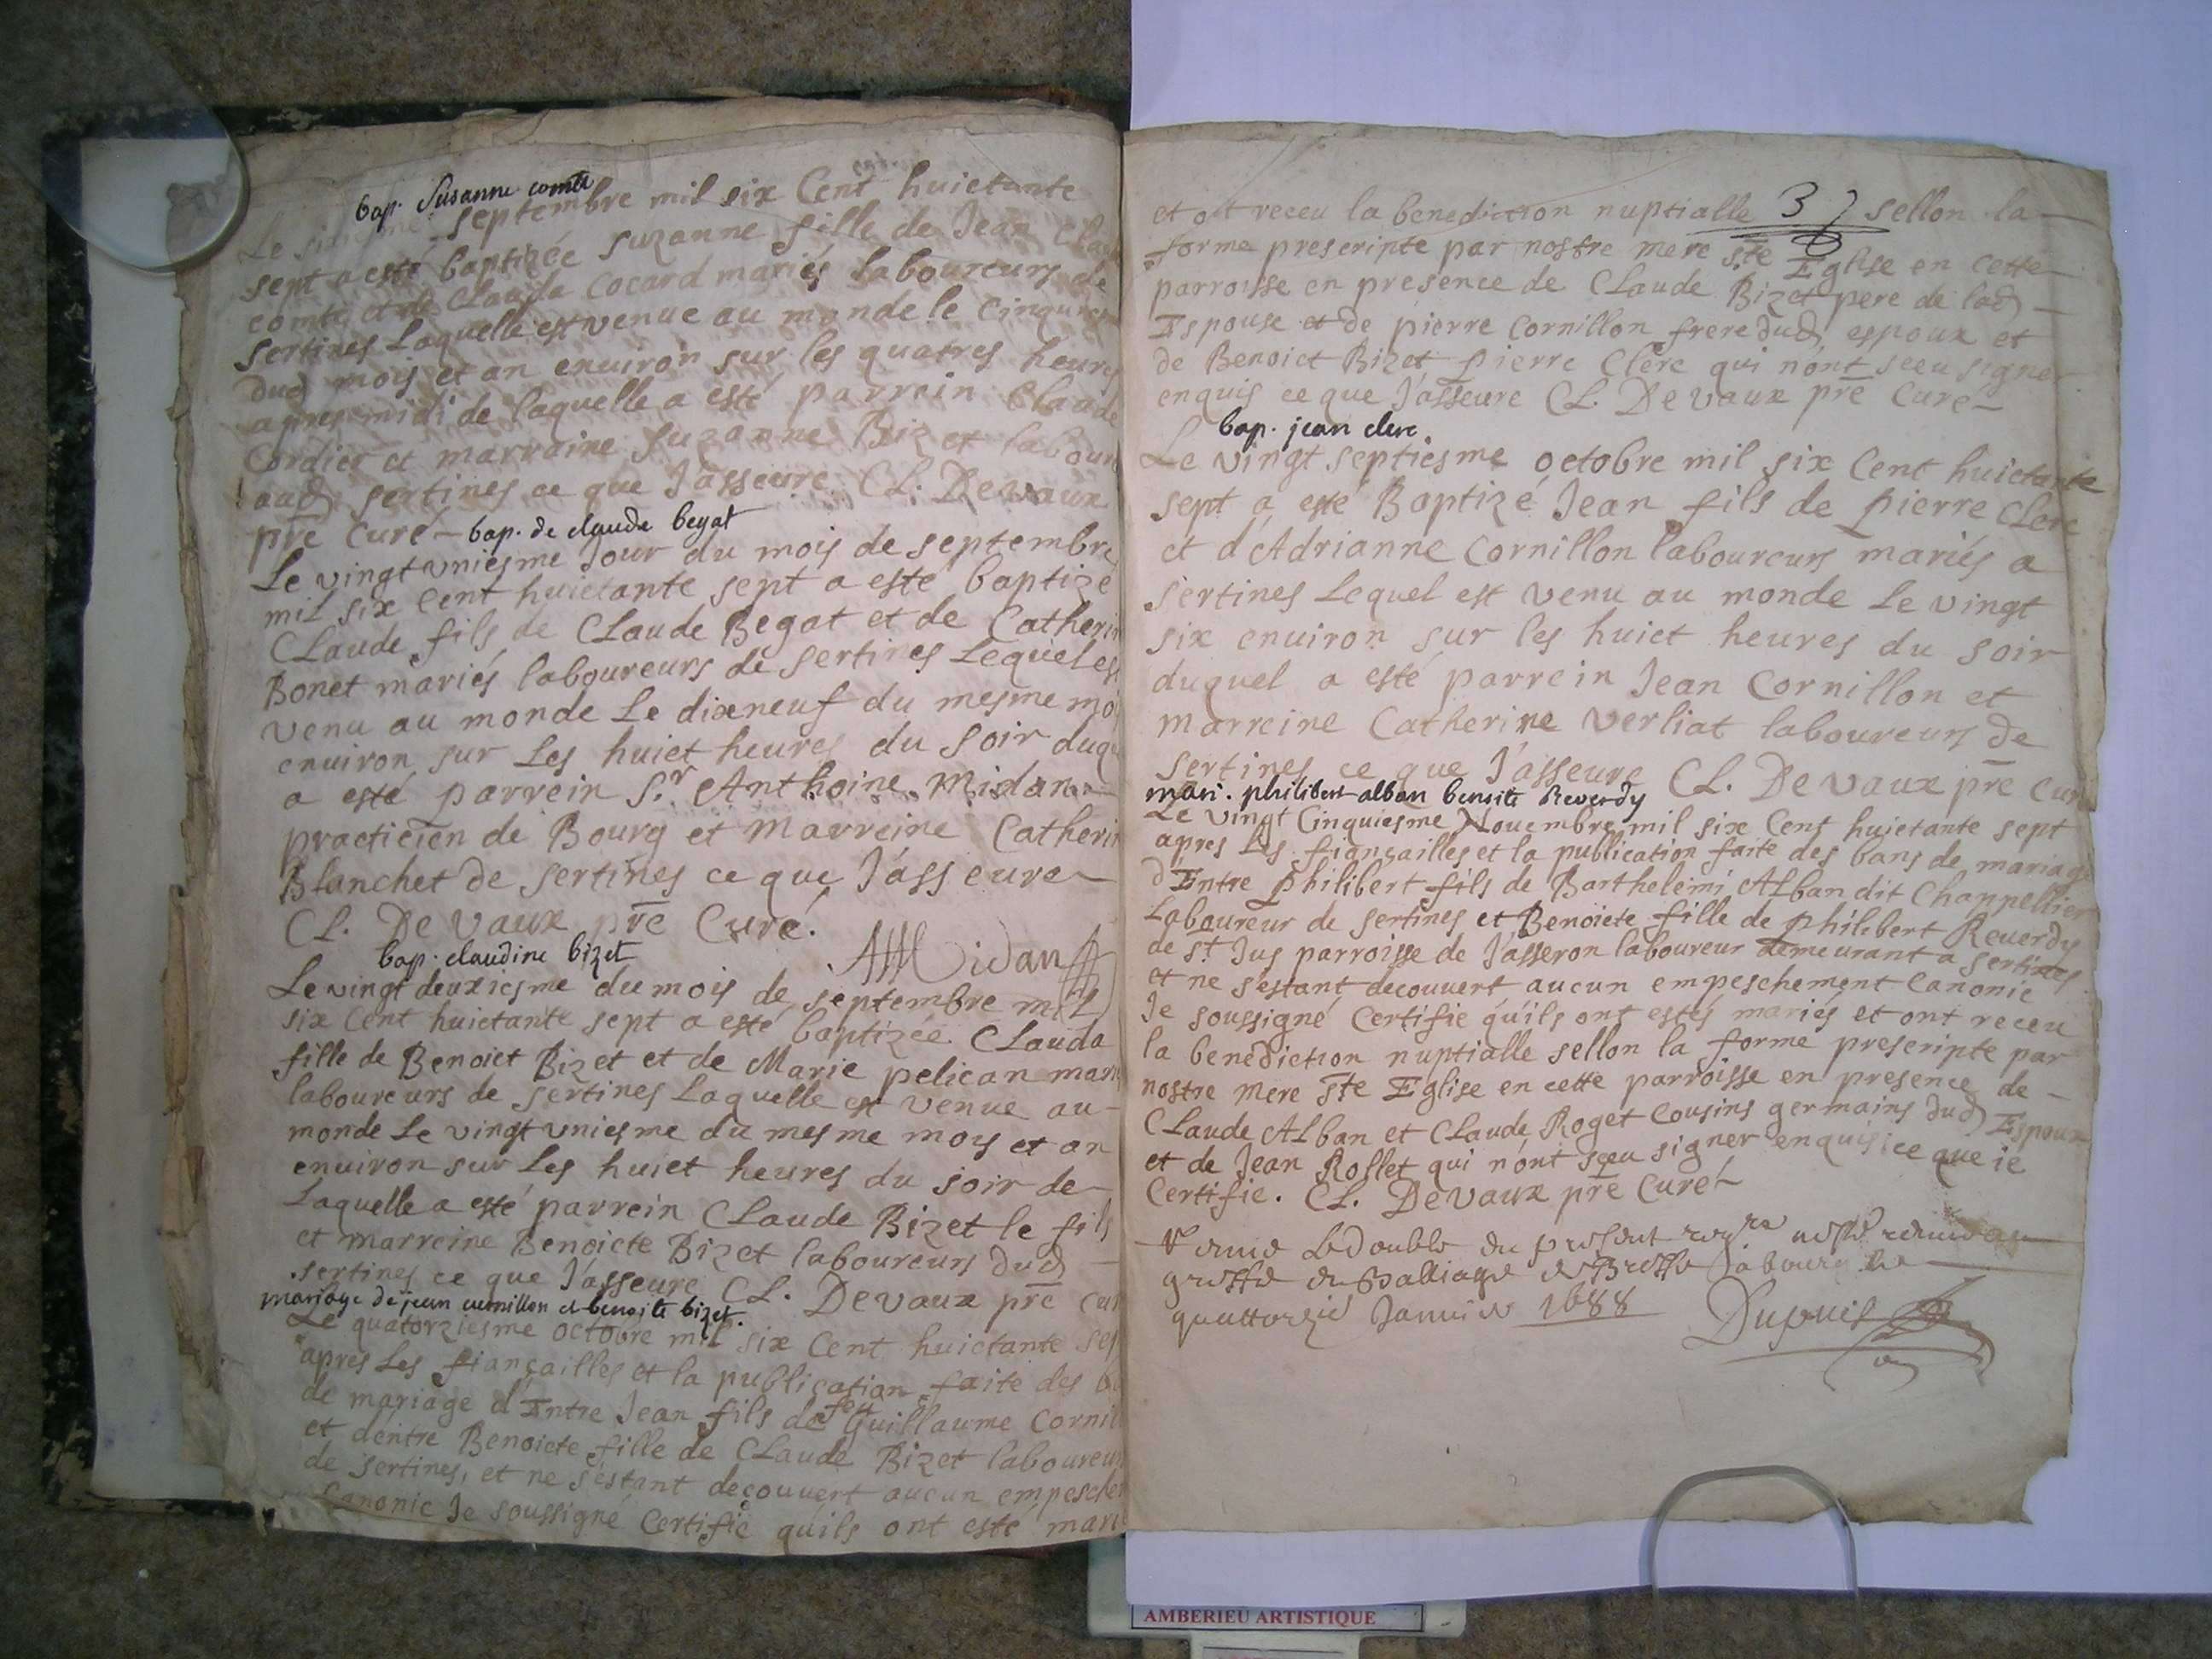 bap. Susanne comte
Le sixiesme septembre mil six Cent huictante
sept a esté baptizée suzanne fille de Jean
comte et de Clauda Cocard mariés laboureurs de
sertines Laquelle est venue au monde le Cinquies
dud mois et an enuiron sur les quatres heures
apres midi de laquelle a esté parrein Claude
Cordier et marraine suzanne Bizet labour
aud sertines ce que J'asseure CL. Devaux
pre Curé - bap. de claude begat
Le vingt vniesme Jour du mois de septembre
mil six Cent huictante sept a esté baptizé
Claude fils de Claude Begat et de Catherin
Bonet mariés laboureurs de sertines Lequel est
venu au monde Le dixneuf du mesme moi
enuiron sur Les huict heures du soir duqu
a esté parrein S.r Anthoine Midan
practicien de Bourg et Marreine Catherin
Blanchet de sertines ce que J'asseure
CL. De Vaux pre Curé.
AMidan
bap. claudine bizet
Le vingt deuxiesme du mois de septembre mil
six Cent huictante sept a esté baptizée Clauda
fille de Benoict Bizet et de Marie pelican mari
laboureurs de sertines Laquelle est venue au
monde Le vingt vniesme du mesme mois et an
enuiron sur Les huict heures du soir de
Laquelle a esté parrein Claude Bizet le fils
et marreine Benoicte Bizet laboureurs dud
sertines ce que J'asseure CL. Devaux pre cur
mariage de jean cornillon et benoite bizet.
Le quatorziesme octobre mil six Cent huictante sep
apres Les fiançailles et la publication faite des b
de mariage d'Entre Jean fils de feu Guillaume Cornil
et dentre Benoicte fille de Claude Bizet laboureur
de sertines, et ne s'estant decouuert aucun empesche
Canonic Je soussigné Certifie qu'ils ont esté mari
et ont receu la benediction nuptialle 37 sellon la
forme prescripte par nostre mere ste Eglise en cette
parroisse en presence de Claude Bizet pere de lad
Espouse et de pierre Cornillon frere dud espoux et
de Benoict Bizet pierre Clerc qui n'ont sceu signer
enquis ce que J'asseure CL. Devaux pre Curé
bap. jean clerc
Le vingt septiesme octobre mil six Cent huictante
sept a esté Baptizé Jean fils de pierre Clerc
et d'Adrianne Cornillon laboureurs mariés a
sertines Lequel est venu au monde Le vingt
six enuiron sur les huict heures du soir
duquel a esté parrein Jean Cornillon et
marreine Catherine verliat laboureurs de
sertines ce que J'asseure CL. Devaux pre Curé
mari. philibert alban benoite Reverdy
Le vingt Cinquiesme Nouembre mil six Cent huictante sept
apres Les fiançailles et la publication faite des bans de mariage
d'Entre philibert fils de Barthelemi Alban dit Chappellier
Laboureur de sertines et Benoicte fille de philibert Reuerdy
de st Jus parroisse de J'asseron laboureur demeurant a sertines
et ne s'estant decouuert aucun empeschement Canonic
Je soussigné Certifie qu'ils ont estés mariés et ont receu
la benediction nuptialle sellon la forme prescripte par
nostre mere ste Eglise en cette parroisse en presence de
Claude Alban et Claude Roget Cousins germains dud Espoux
et de Jean Rollet qui n'ont sceu signer enquis ce que ie
Certifie. CL. Devaux pre Curé
Le double du present
greffe du Balliage de Bresse a bourg le
quattorzie Januier 1688 Dupuis
AMBERIEU ARTISTIQUE